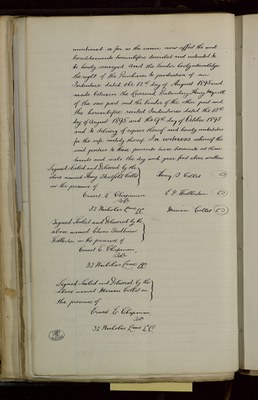 mentioned so far as the same now affect the said
hereditaments hereinbefore described and intended to
be hereby conveyed And the Vendor hereby acknowledges
the right of the Purchasers to production of an
Indenture dated the 11th day of August 1845 and
made between the Reverend Henry
of the one part and the Vendor of the other part and
the hereinbefore recited Indentures dated the
day of August 1845 and the day of October 1895
and to delivery of copies thereof and hereby undertakes
for the safe custody thereof In witness whereof the
said parties to these presents have hereunto set their
hands and seals the day and year first above written
Signed Sealed and Delivered by the
above named Henry Collet
in the presence of
Ernest E. Chapman
Solr
32 Nicholas Lane EC
Henry B Collet
E F
Marian Collet
Signed Sealed and Delivered by the
above named
in the presence of
Ernest E. Chapman
Solr
32 Nicholas Lane EC
Signed Sealed and Delivered by the
above named Marian Collet in
the presence of
Ernest E. Chapman
Solr
32 Nicholas Lane E.C.